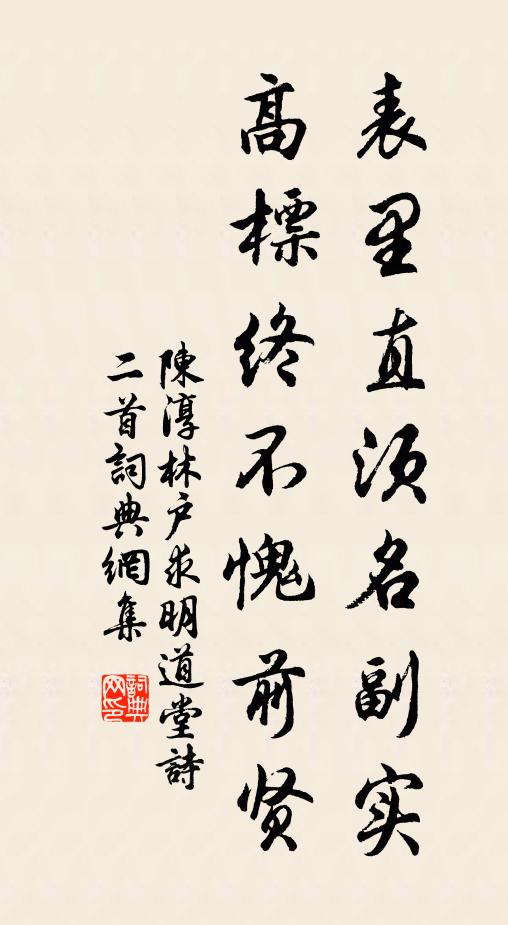 表里直须名副实
高標终不愧前贤
陳淳林户求明道堂詩
二首詞典網集
詞典
网印